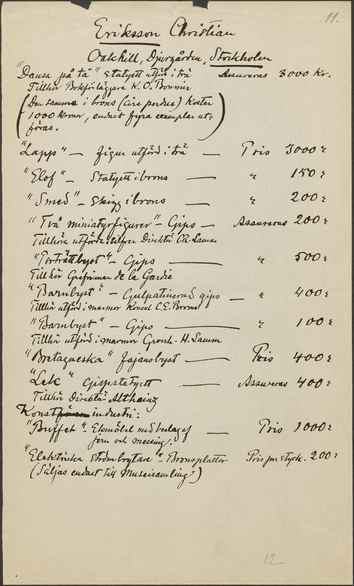 11.
Eriksson Christian
Oakhill, Djurgården, Stockholm
"Dansa på tå" statyett utförd i trä Assureras 3000 Kr.
Tillhör Bokförläggare K. O. Bonnier
(Den samma i brons (cire perdue) kostar
1000 kronor, endast fyra exemplar ut-
föras.)
"Lapp" — figur utförd i trä — Pris 3000 :
"Elof" — Statyett i brons — " 150 :
"Smed" — skizz i brons — " 200 :
"Två miniatyrfigurer" — Gips — Assureras 200 :
Tillhöra Direktör
"Porträttbyst" — Gips — " 500 :
Tillhör Grefvinnan de la Gardie
"Barnbyst" — Gulpatinerad gips — " 400 :
Tillhör utförd i marmor Konsul
"Barnbyst" — Gips — " 100 :
Tillhör utförd i marmor H.
"Bretagneska" Fajansbyst — Pris 400 :
"Lek" Gipsstatyett — Assureras 400 :
Tillhör Direktör Althainz
Konstindustri:
"Buffet" — Ekmöbel med beslag af — Pris 1000 :
järn och messing.
"Elektriska Strömbrytare" — Bronsplattor Pris per styck. 200 :
(Säljas endast till Museisamling?)
12